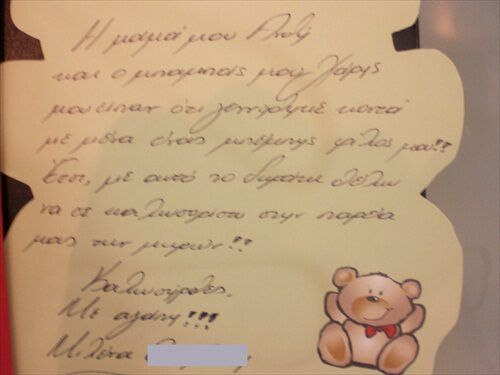 Η μαμά μου Εύη
και ο μπαμπάς μου Χάρης
μου είπαν ότι γεννήθηκε κοντά
με μένα ένας μπέμπης φίλος μου!!
Έτσι, με αυτό το δωράκι θέλω
να σε καλωσορίσω στην παρέα
μας των μικρών!!
Καλωσόρισες,
Με αγάπη!!!
Μιλένα